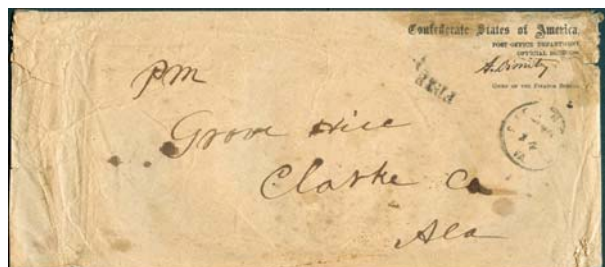 Confederate States of America,
POST OFFICE DEPARTMENT
OFFICIAL BUSINESS
CHIEF OF THE FINANCE BUREAU
FREE
PM
Grove Hill
Clarke Co
Ala